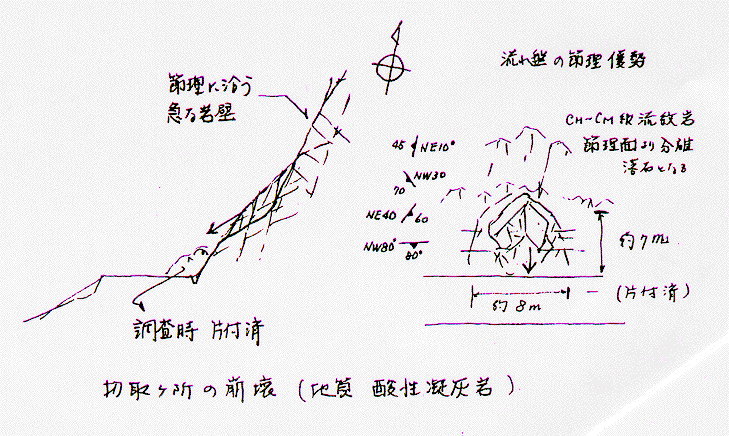 流れ盤の節理優勢
節理に沿う
急な岩壁
CH~CM級流紋岩
節理面より分離
落石となる
45 NE10°
NW30
70
NE40 60
NW80°
80°
約7m
約8m
(片付済)
調査時 片付済
切取ヶ所の崩壊(地質 酸性凝灰岩)